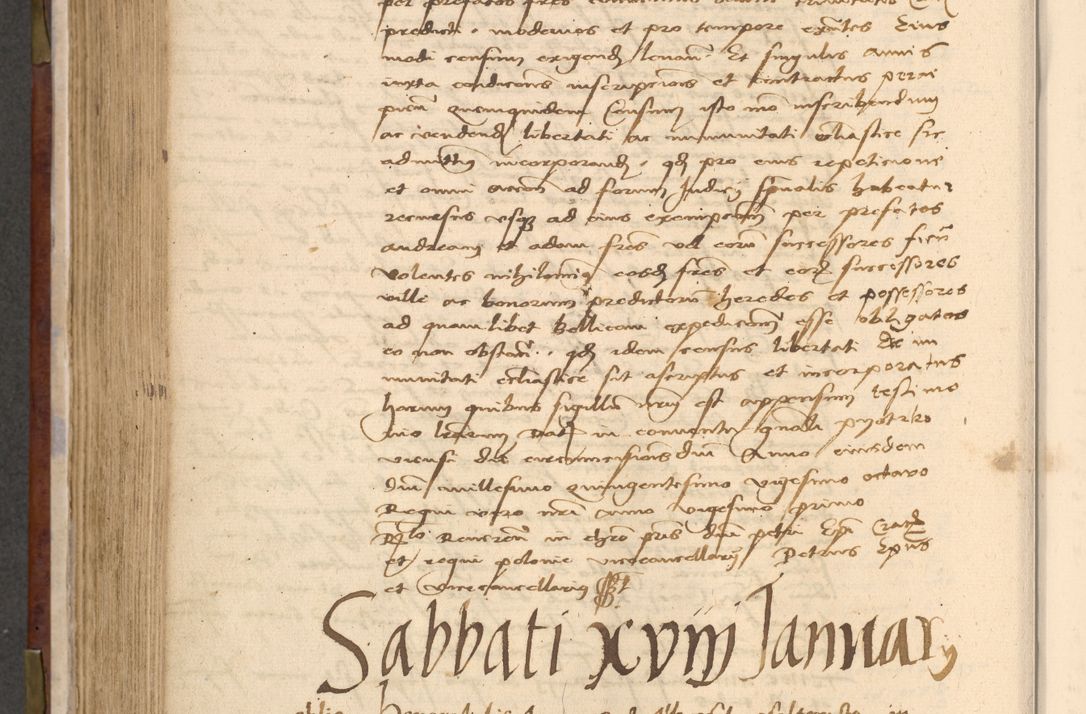 predicti modernos et pro tempore exn̄tes Eius
modi censum exigend levan Et singulis annis
iuxta condiciones inscripcionis et contractus percipi
piend quemquidem Censum isto mō inscribendum
ac vendend libertati ac immunitati ecclīastice sic
admittim incorporand qd pro eius repeticione
et omni accōn ad forum Iudicij spūalis habeatur
recursus usq ad eius exempcionem per prefatos
andream et adam frēs vel eorum successores fien
volentes nihilominq eosd frēs et eord successores
ville ac bonorum predictorum heredes et possessores
ad quamlibet bellicam expedicionem esse obligatos
eo non obstan qd idem census libertati et im
munitati ecclīastice sit ascriptus et incorporatus
harum quibus sigillum nrm est appensum testimo
nio lrārum Dat in conventu gnāli pyotrko
viensi die circumcisionis dni Anno eiusdem
dni millesimo quingentesimo vigesimo octavo
Regni vero nrī anno vigesimo primo
Rlo Reveren in chrō pris dni petri Epi Crac
et regni polonie vicecancellarij Petrus Epus
et vicecancellarius sst
Sabbati xviij Januarij